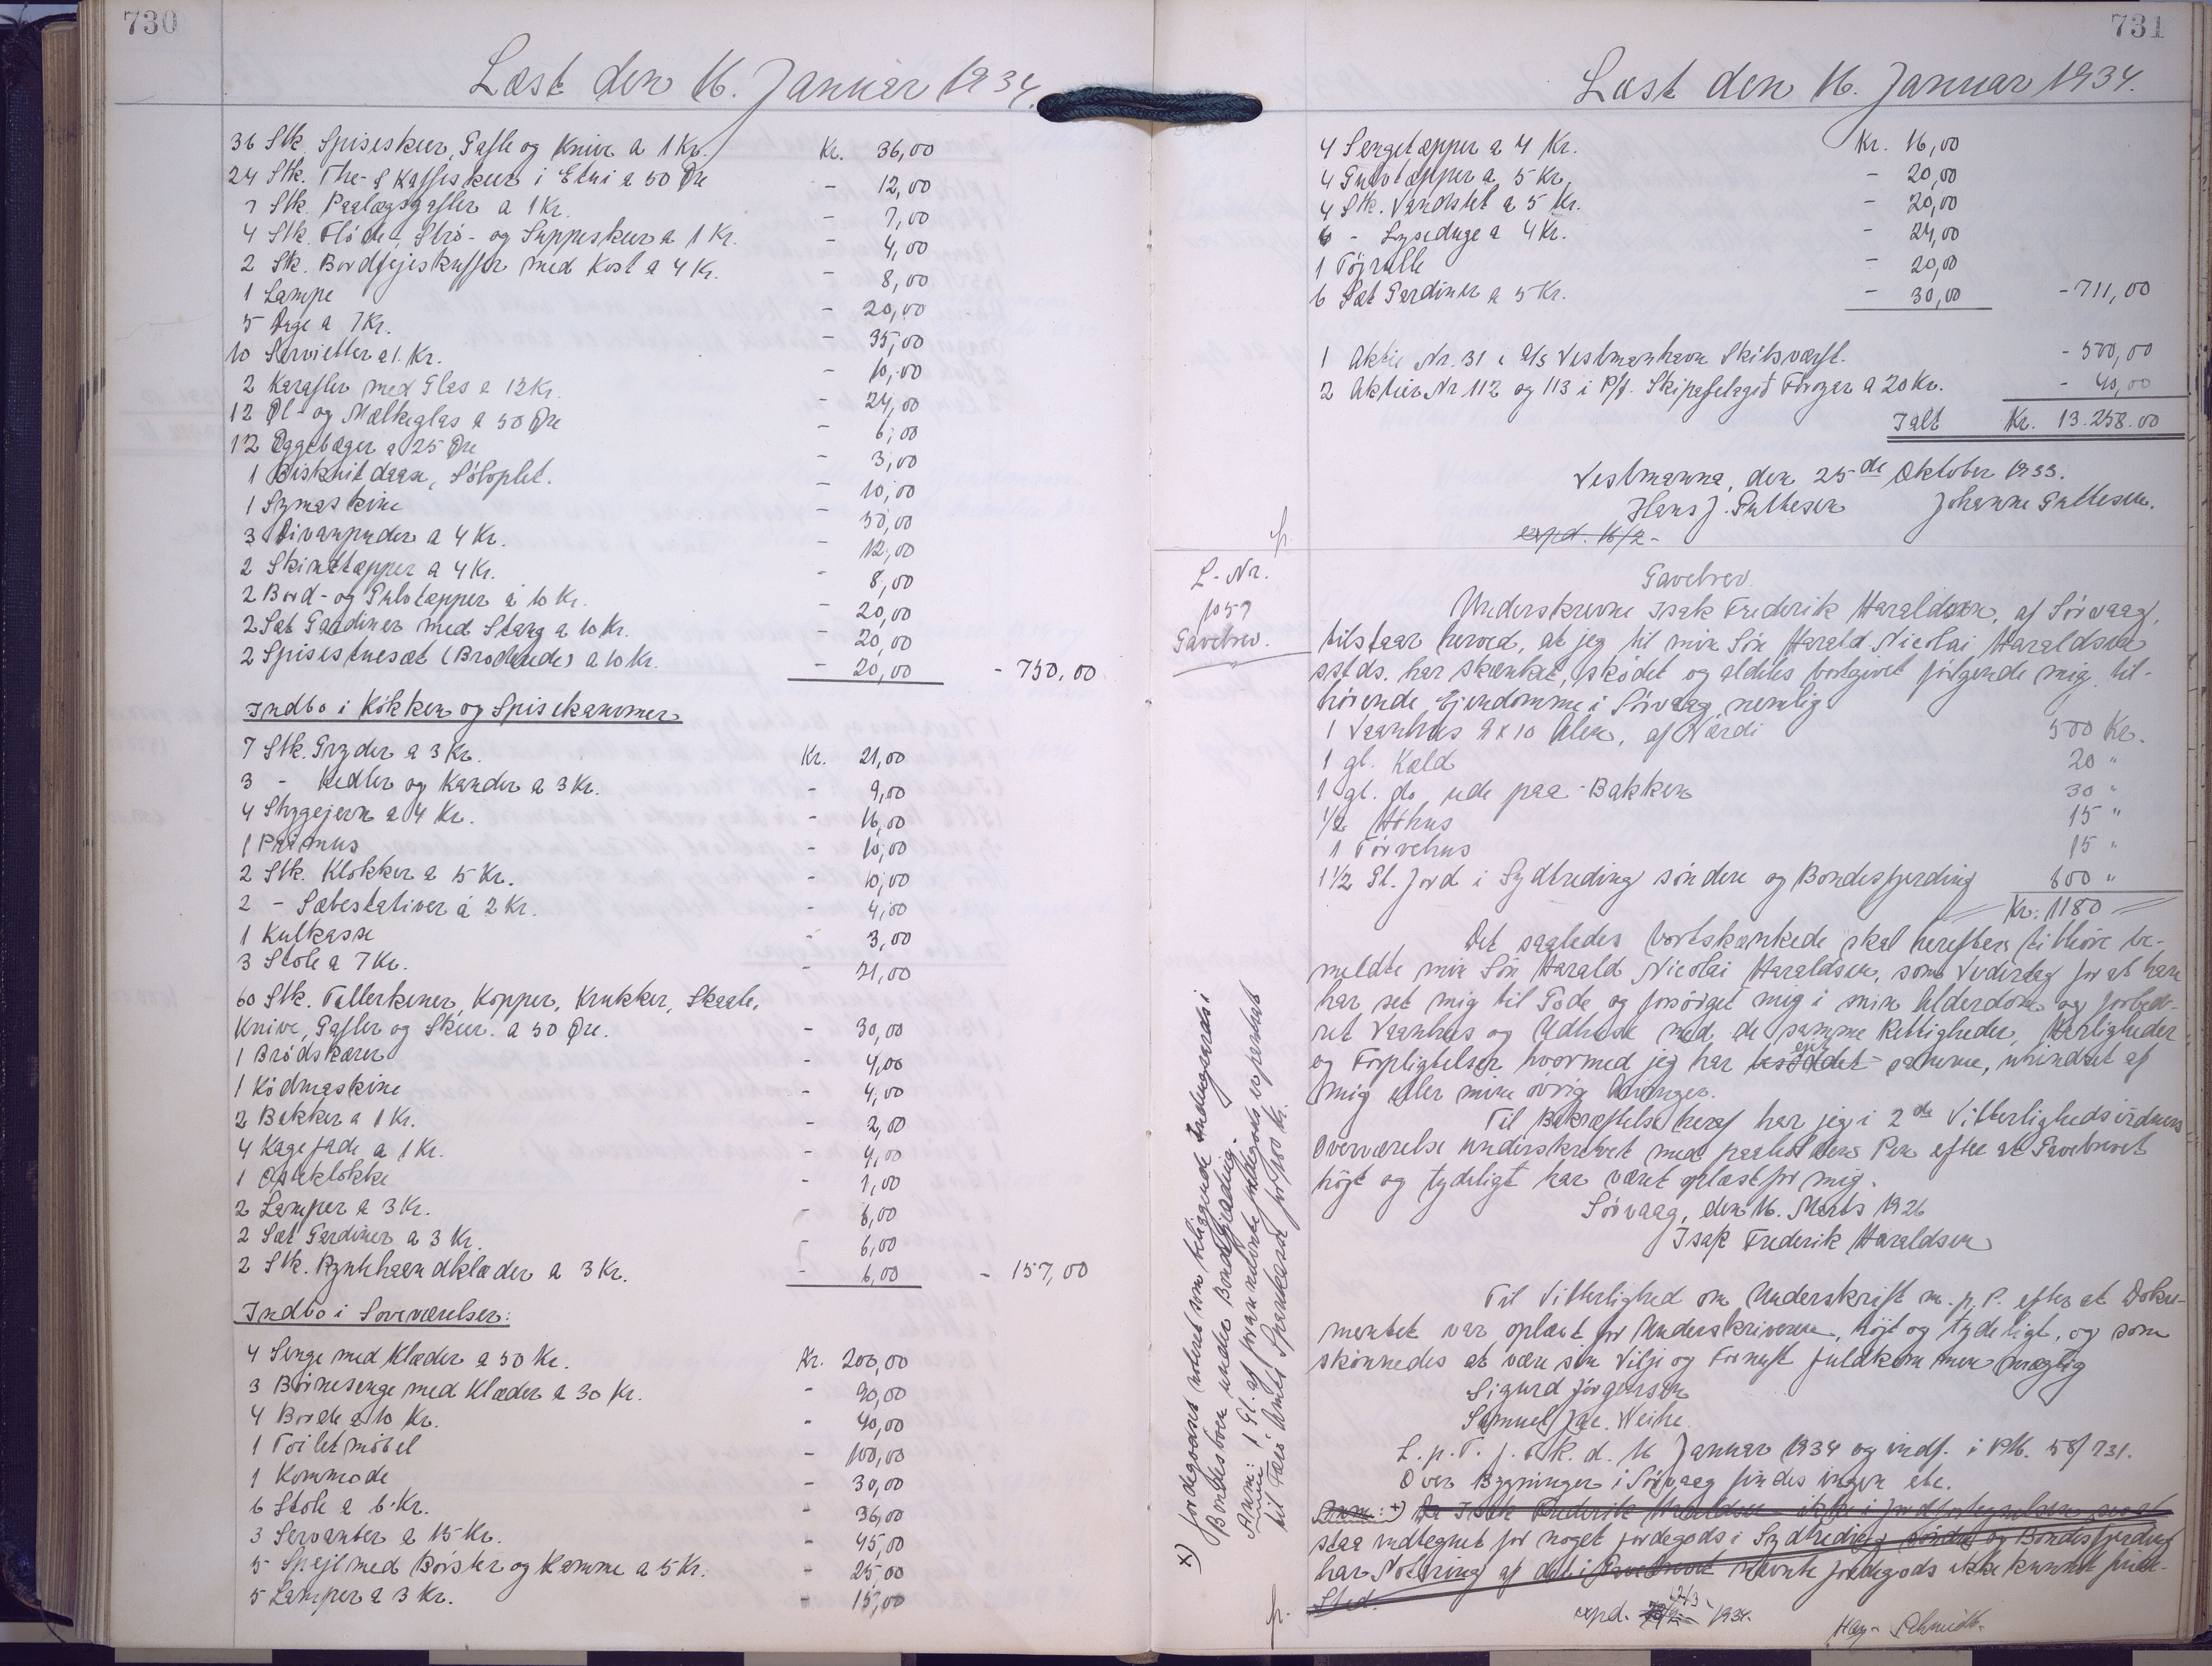 730
Læst den 16. Januar 1934.
36 Stk. Spiseskeer, Gafle og Knive a 1 Kr. Kr. 36,00
24 Stk. The- & Kaffeskeer i Etui a 50 Øre - 12,00
7 Stk. Paalægsgafler a 1 Kr. - 7,00
4 Stk. Fløde-, Strö- og Suppeskeer a 1 Kr. - 4,00
2 Stk. Bordfejeskuffer med Kost a 4 Kr. - 8,00
1 Lampe - 20,00
5 Duge a 7 Kr. - 35,00
10 Servietter a 1. Kr. - 10,00
2 Karafler med Glas a 12 Kr. - 24,00
12 Øl- og Mælkeglas a 50 Øre - 6,00
12 Æggebæger a 25 Øre - 3,00
1 Biskuitdaase, Sölvplet. - 10,00
1 Symaskine - 50,00
3 Divanpuder a 4 Kr. - 12,00
2 Skindtæpper a 4 Kr. - 8,00
2 Bord- og Gulvtæpper a 10 Kr. - 20,00
2 Sæt Gardiner med Stang a 10 Kr. - 20,00
2 Spisestuesæt (Broderede) a 10 Kr. - 20,00 - 750,00
Indbo i Kökken og Spisekammer
7 Stk. Gryder a 3 Kr. Kr. 21,00
3 - Kedler og Kander a 3 Kr. - 9,00
4 Strygejern a 4 Kr. - 16,00
1 Primus - 10,00
2 Stk. Klokker a 5 Kr. - 10,00
2 - Sæbestativer á 2 Kr. - 4,00
1 Kulkasse - 3,00
3 Stole a 7 Kr. - 21,00
60 Stk. Tallerkener, Kopper, Krukker, Skaale,
Knive, Gafler og Skeer. a 50 Øre. - 30,00
1 Brödskærer - 4,00
1 Ködmaskine - 4,00
2 Bakker a 1 Kr. - 2,00
4 Kagefade a 1 Kr. - 4,00
1 Osteklokke - 1,00
2 Lamper a 3 Kr. - 6,00
2 Sæt Gardiner a 3 Kr. - 6,00
2 Stk. Pyntehaandklæder a 3 Kr. - 6,00 - 157,00
Indbo i Soveværelser:
4 Senge med Klæder a 50 Kr. Kr. 200,00
3 Börnesenge med Klæder a 30 Kr. - 90,00
4 Borde a 10 Kr. - 40,00
1 Toiletmöbel - 100,00
1 Kommode - 30,00
6 Stole a 6 Kr. - 36,00
3 Servanter a 15 Kr. - 45,00
5 Spejl med Börster og Kamme a 5 Kr. - 25,00
5 Lamper a 3 Kr. - 15,00
731
Læst den 16. Januar 1934.
4 Sengetæpper a 4 Kr. Kr. 16,00
4 Gulvtæpper a 5 Kr. - 20,00
4 Stk. Vandstel a 5 Kr. - 20,00
6 - Lyseduge a 4 Kr. - 24,00
1 Töjrulle - 20,00
6 Sæt Gardiner a 5 Kr. - 30,00 - 711,00
1 Aktie Nr. 31 i A/S Vestmanhavn Skibsværft. - 500,00
2 Aktier Nr 112 og 113 i P/f. Skipafelagið Föroyar a 20 Kr. - 40,00
Ialt Kr. 13.258.00
Vestmanna, den 25de Oktober 1933.
Hans J. Guttesen Johanne Guttesen.
expd. 16/2 -
L-Nr.
1059
Gavebrev.
Gavebrev.
Underskrevne Isak Frederik Haraldsen, af Sörvaag,
tilstaar herved, at jeg til min Sön Harald Nicolai Haraldsen
sstds. har skænket, skødet og aldeles bortgivet følgende mig til-
hørende Ejendomme i Sörvaag nemlig
1 Vaanhus 9 x 10 Alen, af Værdi 500 Kr.
1 gl. Kæld 20 "
1 gl. do ude paa Bakken 30 "
1/2 Höhus 15 "
1 Törvehus 15 "
1 1/2 Gl. Jord i Sydtreding söndere og Bondesfjerding 600 "
Kr. 1180
Det saaledes bortskænkede skal herefter tilhöre be-
meldte min Sön Harald Nicolai Haraldsen, som Vederlag for at have
har set mig til Gode og forsörget mig i min Alderdom og forbed-
ret Vaanhus og Udhuse med de samme Rettigheder, Herligheder
og Forpligtelser hvormed jeg har besiddet ejet samme, uhindret af
mig eller mine övrig Arvinger.
Til Bekræftelse heraf har jeg i 2de Vitterlighedsvidners
Overværelse underskrevet med paaholden Pen efter at Gavebrevet
höjt og tydeligt har været oplæst for mig.
Sörvaag, den 16. Marts 1926
Isak Frederik Haraldsen
Til Vitterlighed om Underskrift m. p. P. efter at Doku-
mentet var oplæst for Underskriveren, höjt og tydeligt, og som
skönnedes at være sin Vilje og Fornuft fuldkommen mægtig
Sigurd Jörgensen
Samuel Jac. Weihe.
L. p. T. f. F. R. d. 16 Januar 1934 og indf. i PM. 58/731.
Over Bygninger i Sörvaag findes ingen etc.
Anm.: +) Da Isak Frederik Haraldsen ikke i Jordfortegnelsen sees at
staa indtegnet for noget Jordegods i Sydtreding söndre og Bondesfjerding
har Notering af det i Gavebrevet nævnte Jordegods ikke kunnet finde
Sted.
expd. 12/3 1934.
Hag- Schmidt.
+) Jordegodset noteret som beliggende Indengærds i
Bondesboen under Bondesfjerding.
Anm: 1 Gl. af forannævnte Jordegods er pantsat
til Færø Amts Sparekasse for 400 kr.